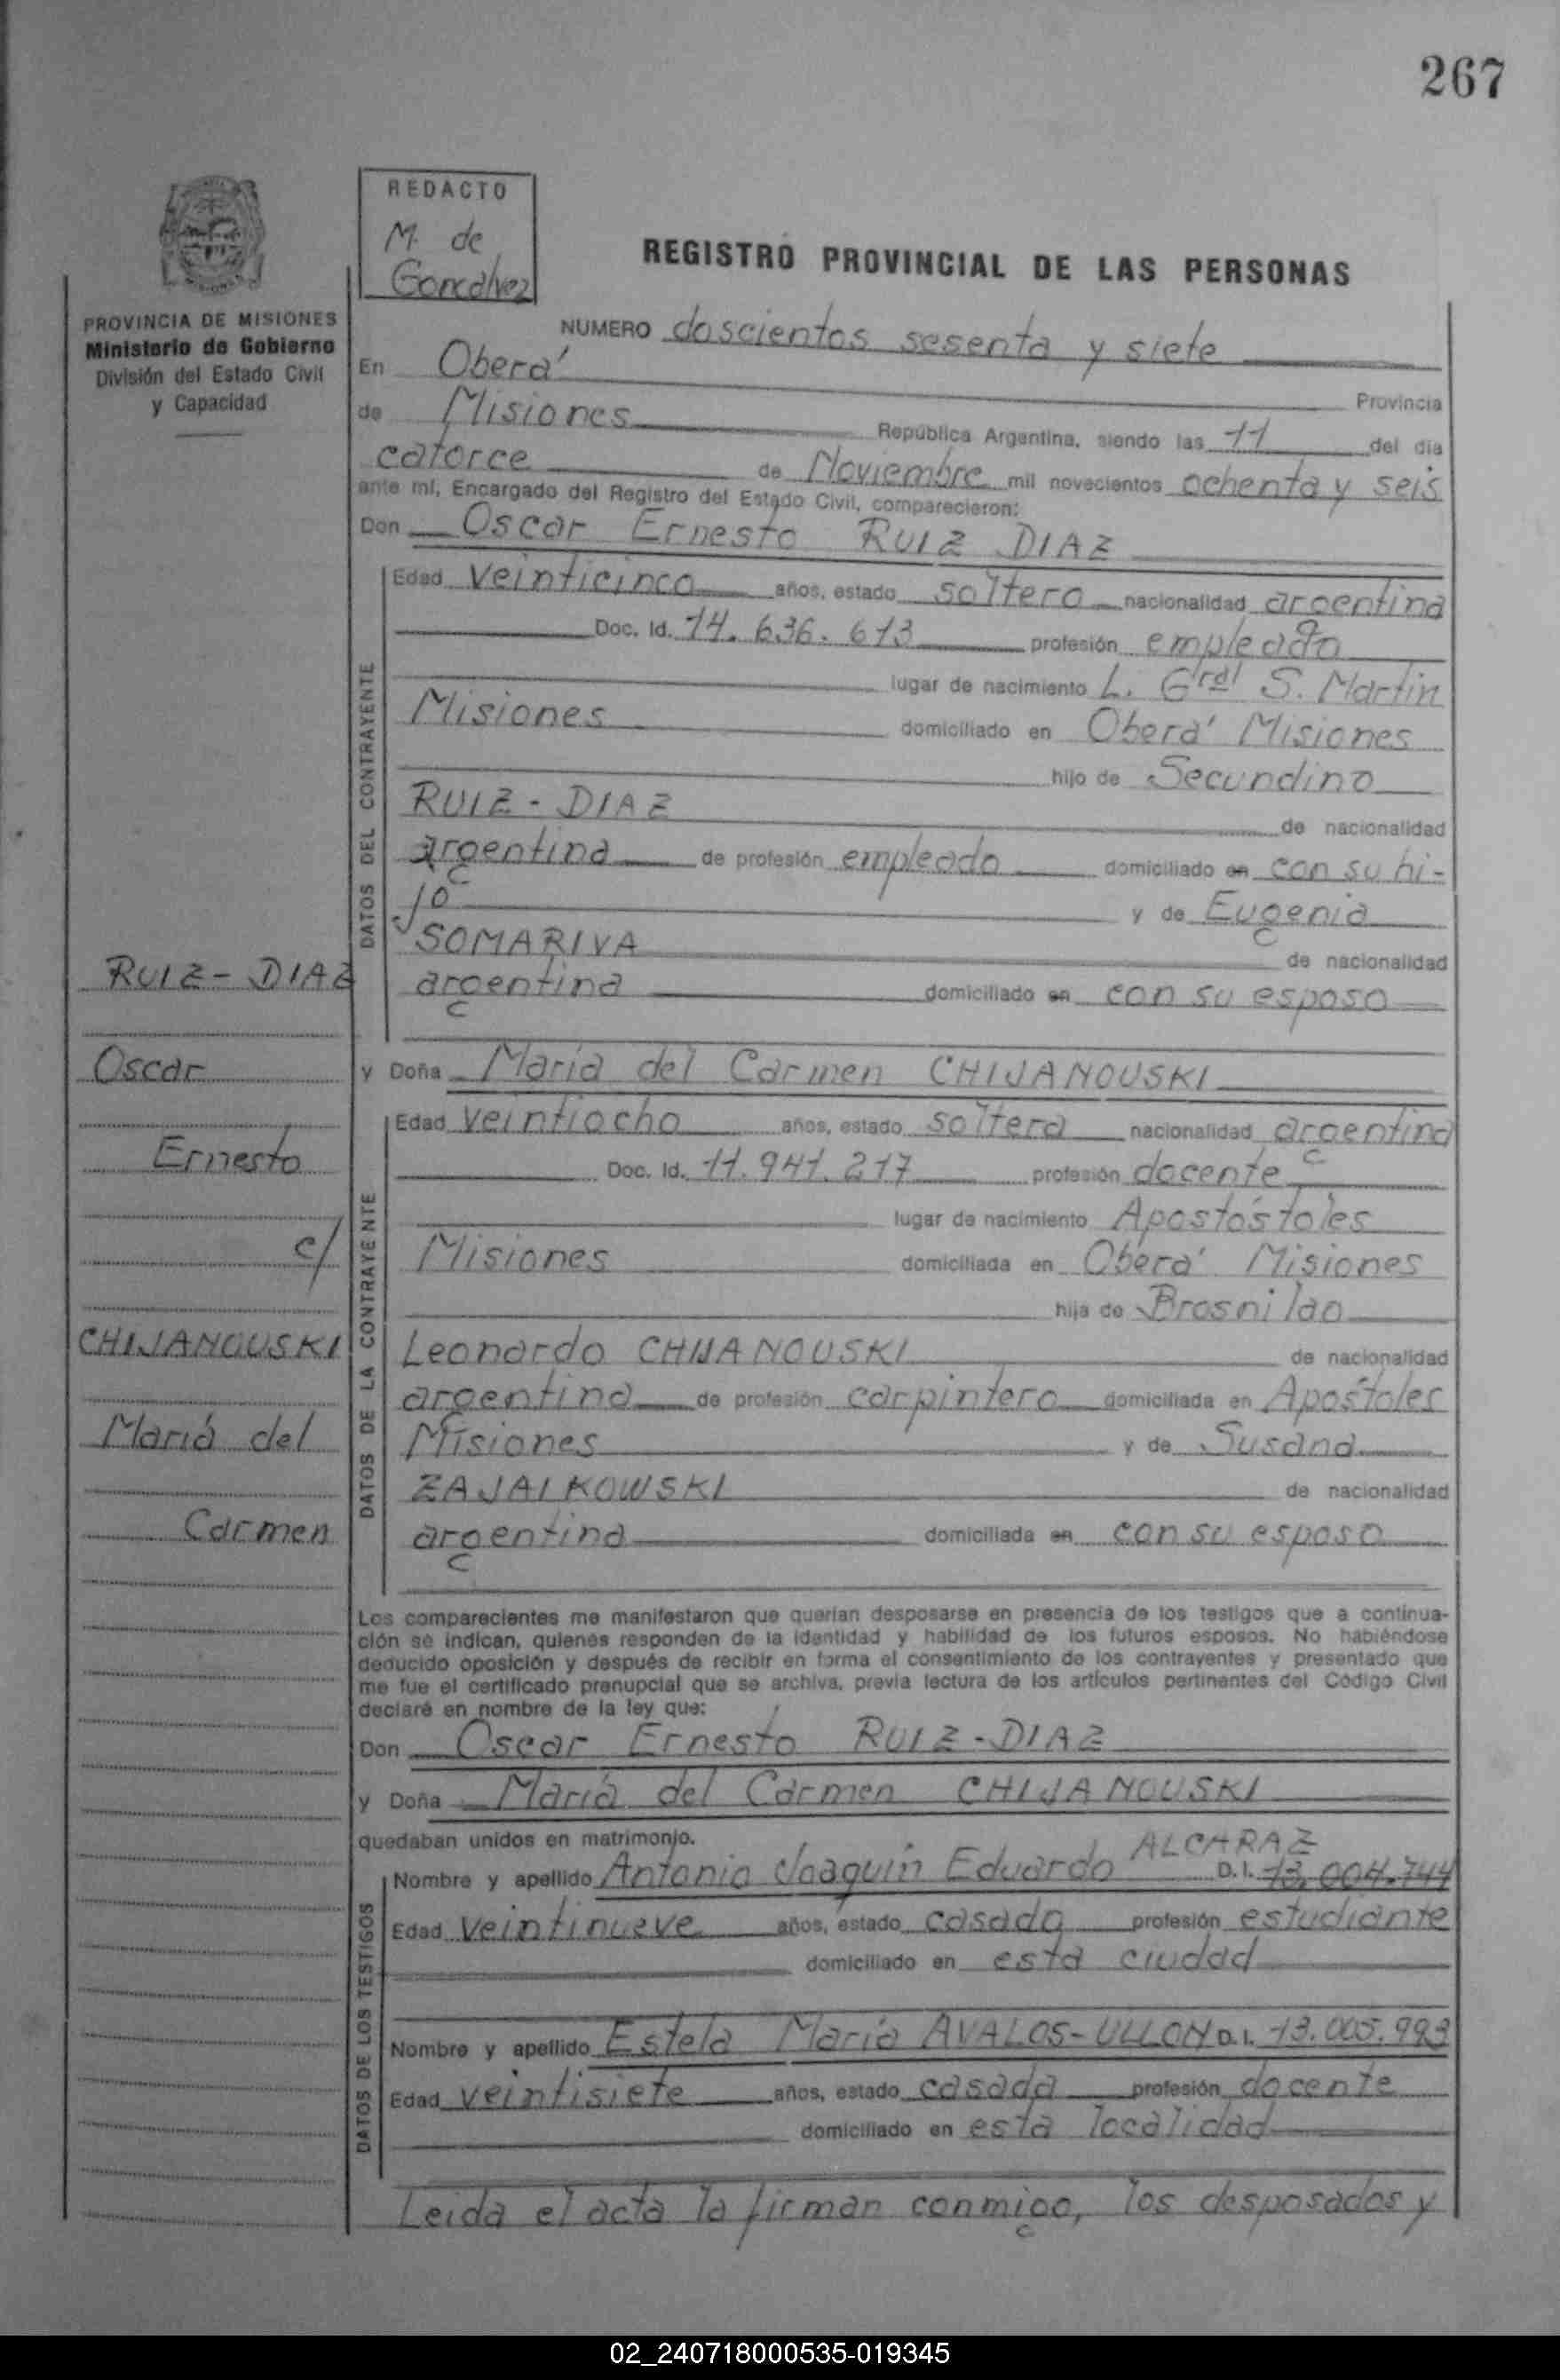 267
REDACTO
M. de
Goncalvez
REGISTRO PROVINCIAL DE LAS PERSONAS
PROVINCIA DE MISIONES
Ministerio de Gobierno
División del Estado Civil
y Capacidad
NUMERO doscientos sesenta y siete
En Oberá Provincia
de Misiones República Argentina, siendo las 11 del día
catorce de Noviembre mil novecientos ochenta y seis
ante mí, Encargado del Registro del Estado Civil, comparecieron:
Don Oscar Ernesto RUIZ DIAZ
DATOS DEL CONTRAYENTE
Edad veinticinco años, estado soltero nacionalidad argentina
Doc. Id. 14.636.613 profesión empleado
lugar de nacimiento L. Gral S. Martin
Misiones domiciliado en Oberá Misiones
hijo de Secundino
RUIZ - DIAZ de nacionalidad
argentina de profesión empleado domiciliado en con su hi-
jo y de Eugenia
SOMARIVA de nacionalidad
argentina domiciliado en con su esposo
y Doña María del Carmen CHIJANOUSKI
DATOS DE LA CONTRAYENTE
Edad veintiocho años, estado soltera nacionalidad argentina
Doc. Id. 11.941.217 profesión docente
lugar de nacimiento Apostóstoles
Misiones domiciliada en Oberá Misiones
hija de Brosnilao
Leonardo CHIJANOUSKI de nacionalidad
argentina de profesión carpintero domiciliada en Apóstoles
Misiones y de Susana
ZAJAIKOWSKI de nacionalidad
argentina domiciliada en con su esposo
RUIZ - DIAZ
Oscar
Ernesto
c/
CHIJANOUSKI
María del
Carmen
Los comparecientes me manifestaron que querían desposarse en presencia de los testigos que a continua-
ción se indican, quienes responden de la identidad y habilidad de los futuros esposos. No habiéndose
deducido oposición y después de recibir en forma el consentimiento de los contrayentes y presentado que
me fue el certificado prenupcial que se archiva, previa lectura de los artículos pertinentes del Código Civil
declaré en nombre de la ley que:
Don Oscar Ernesto RUIZ - DIAZ
y Doña María del Carmen CHIJANOUSKI
quedaban unidos en matrimonio.
DATOS DE LOS TESTIGOS
Nombre y apellido Antonio Joaquín Eduardo ALCARAZ D.I. 13.004.744
Edad veintinueve años, estado casado profesión estudiante
domiciliado en esta ciudad
Nombre y apellido Estela María AVALOS-ULLON D.I. 13.005.993
Edad veintisiete años, estado casada profesión docente
domiciliado en esta localidad
Leida el acta la firman conmigo, los desposados y
02_240718000535-019345